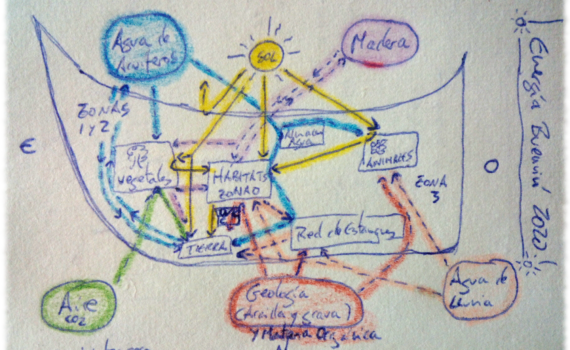 Agua de
Acuiferos
SOL
Madera
ZONAS
1 Y 2
E
Agua
vegetales
HABITATS
ZONA 0
ANIMALES
ZONA
3
O
TIERRA
Red de Estanques
Aire
CO2
Geología
(Arcilla y grava)
y Materia Orgánica
Agua de
Lluvia
Energía Buenuvi 2020!